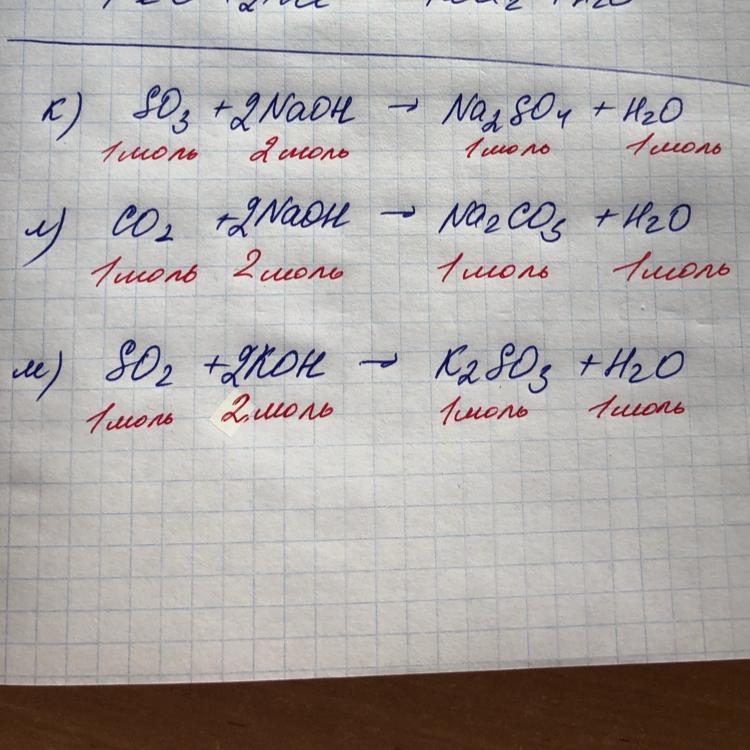 к) SO₃ + 2NaOH → Na₂SO₄ + H₂O
1моль 2моль 1моль 1моль
л) CO₂ + 2NaOH → Na₂CO₃ + H₂O
1моль 2моль 1моль 1моль
м) SO₂ + 2KOH → K₂SO₃ + H₂O
1моль 2моль 1моль 1моль